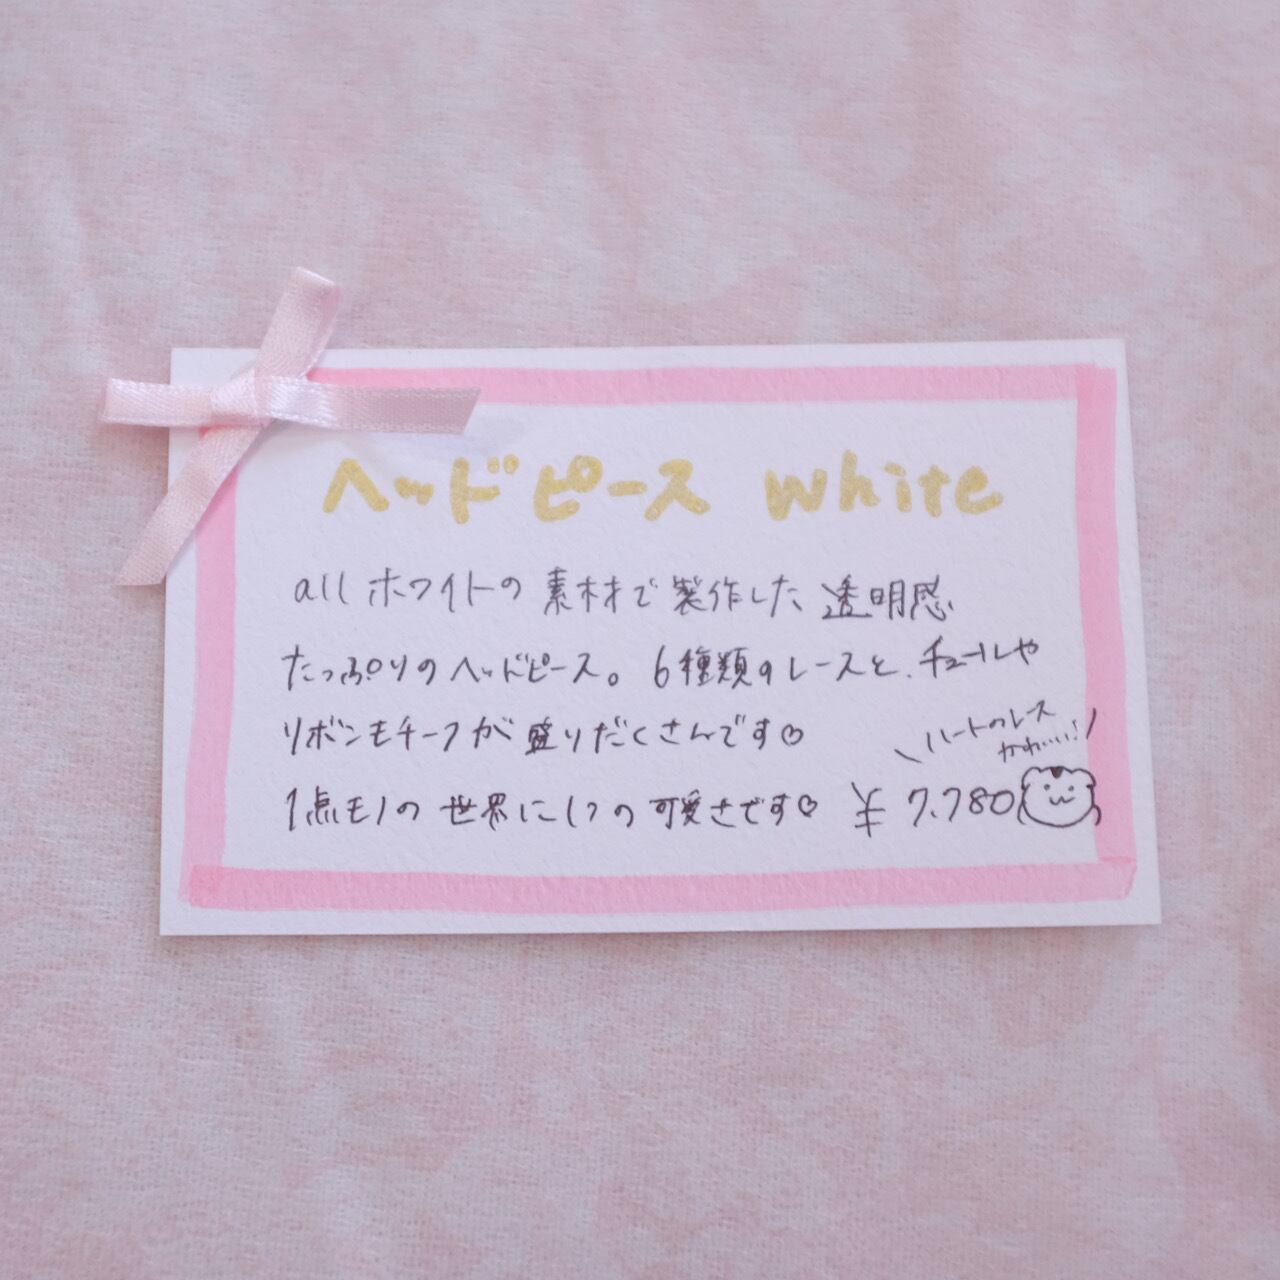 ヘッドピース White
allホワイトの素材で製作した透明感
たっぷりのヘッドピース。6種類のレースと、チュールや
リボンモチーフが盛りだくさんです♡
\ハートのレース
かわいい!/
1点モノの世界に1つの可愛さです♡ ¥7.780